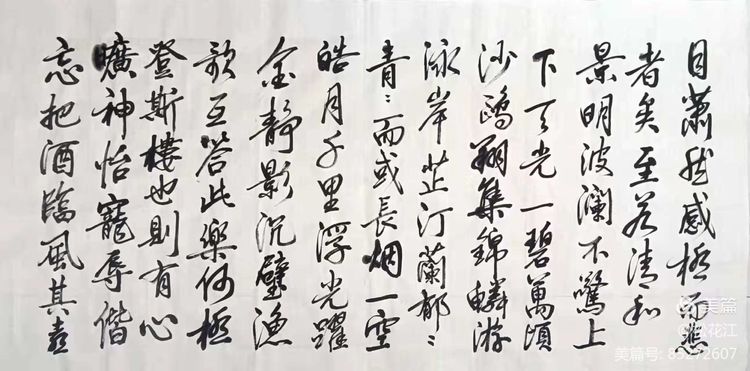 目蕭然感極而悲
者矣至若清和
景明波瀾不驚上
下天光一碧萬頃
沙鷗翔集錦鱗游
泳岸芷汀蘭郁〻
青〻而或長烟一空
皓月千里浮光躍
金静影沉璧漁
歌互答此樂何極
登斯樓也則有心
曠神怡寵辱偕
忘把酒臨風其喜
美篇
@松花江
美篇号: 85272607